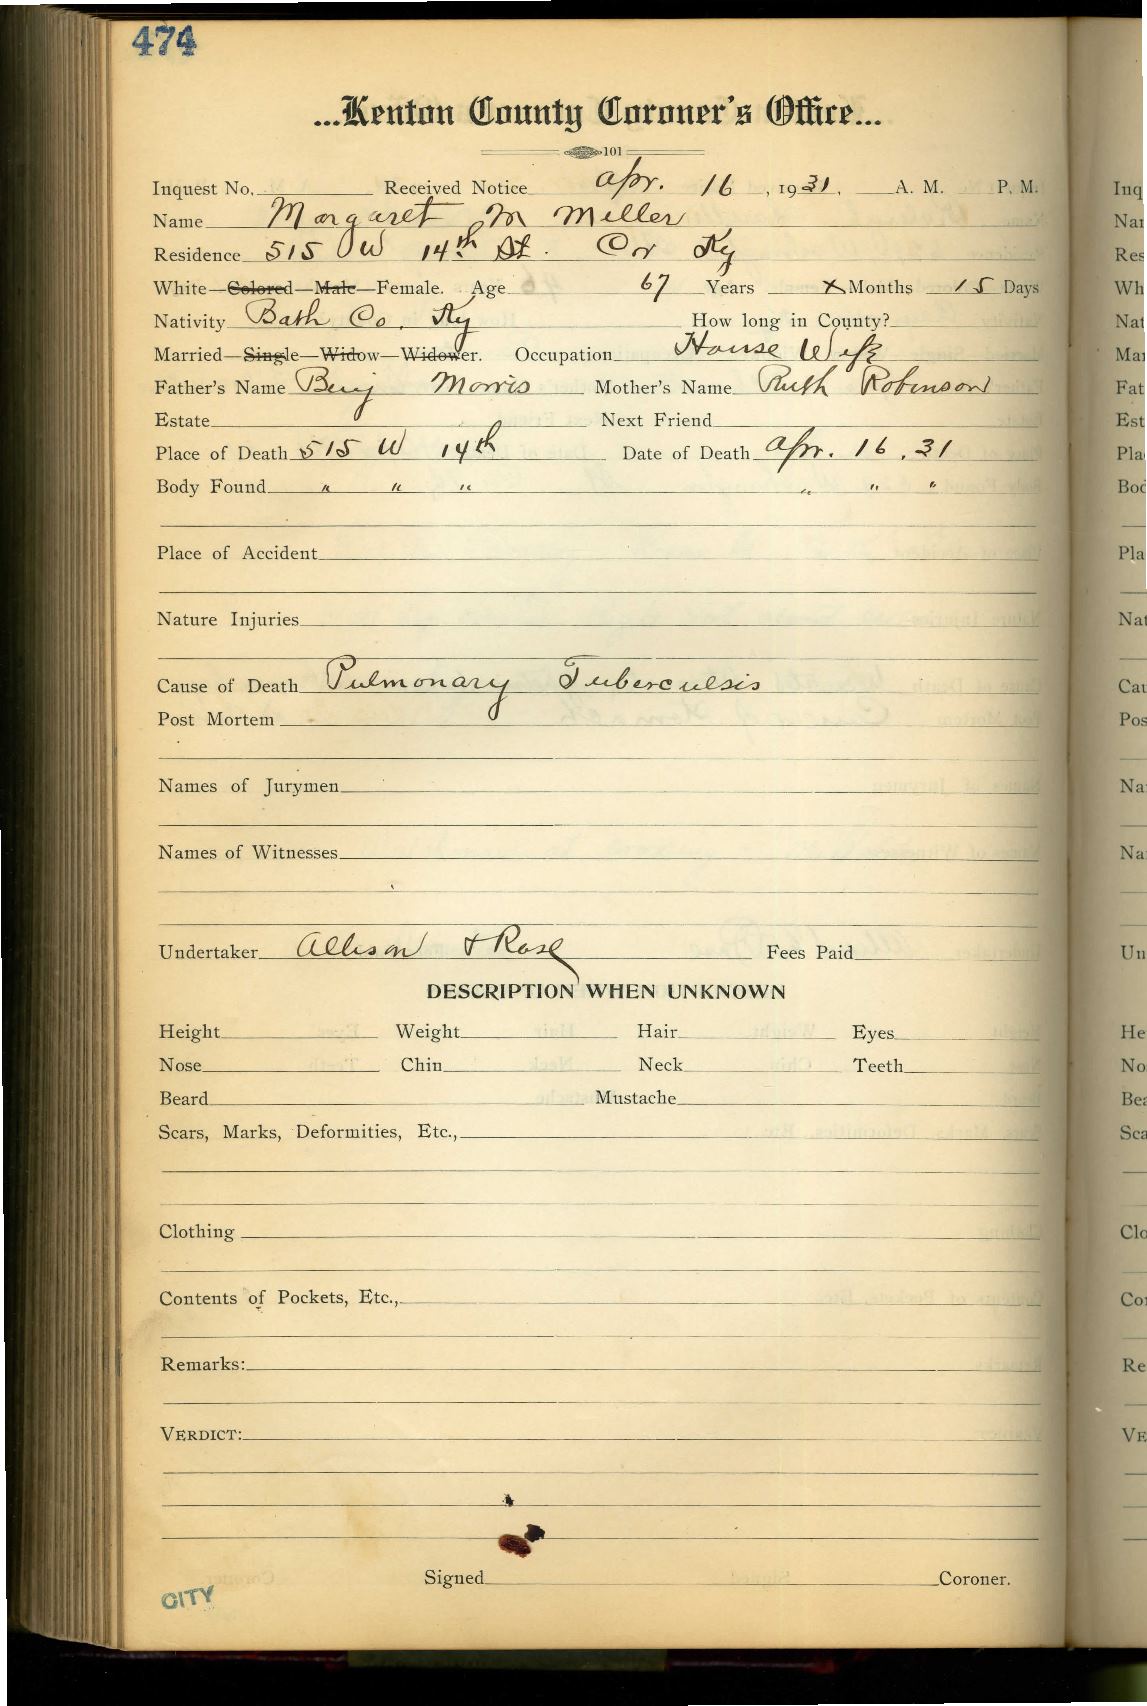 474
...Kenton County Coroner's Office...
101
Inquest No. Received Notice Apr. 16, 1931, A. M. P. M.
Name Margaret M Miller
Residence 515 W 14th St. Cov Ky
White—Colored—Male—Female. Age 67 Years x Months 15 Days
Nativity Bath Co. Ky How long in County?
Married—Single—Widow—Widower. Occupation House Wife
Father's Name Benj Morris Mother's Name Ruth Robinson
Estate Next Friend
Place of Death 515 W 14th Date of Death Apr. 16, 31
Body Found " " " " " "
Place of Accident
Nature Injuries
Cause of Death Pulmonary Tuberculsis
Post Mortem
Names of Jurymen
Names of Witnesses
Undertaker Allison & Rose Fees Paid
DESCRIPTION WHEN UNKNOWN
Height Weight Hair Eyes
Nose Chin Neck Teeth
Beard Mustache
Scars, Marks, Deformities, Etc.,
Clothing
Contents of Pockets, Etc.,
Remarks:
VERDICT:
Signed Coroner.
CITY